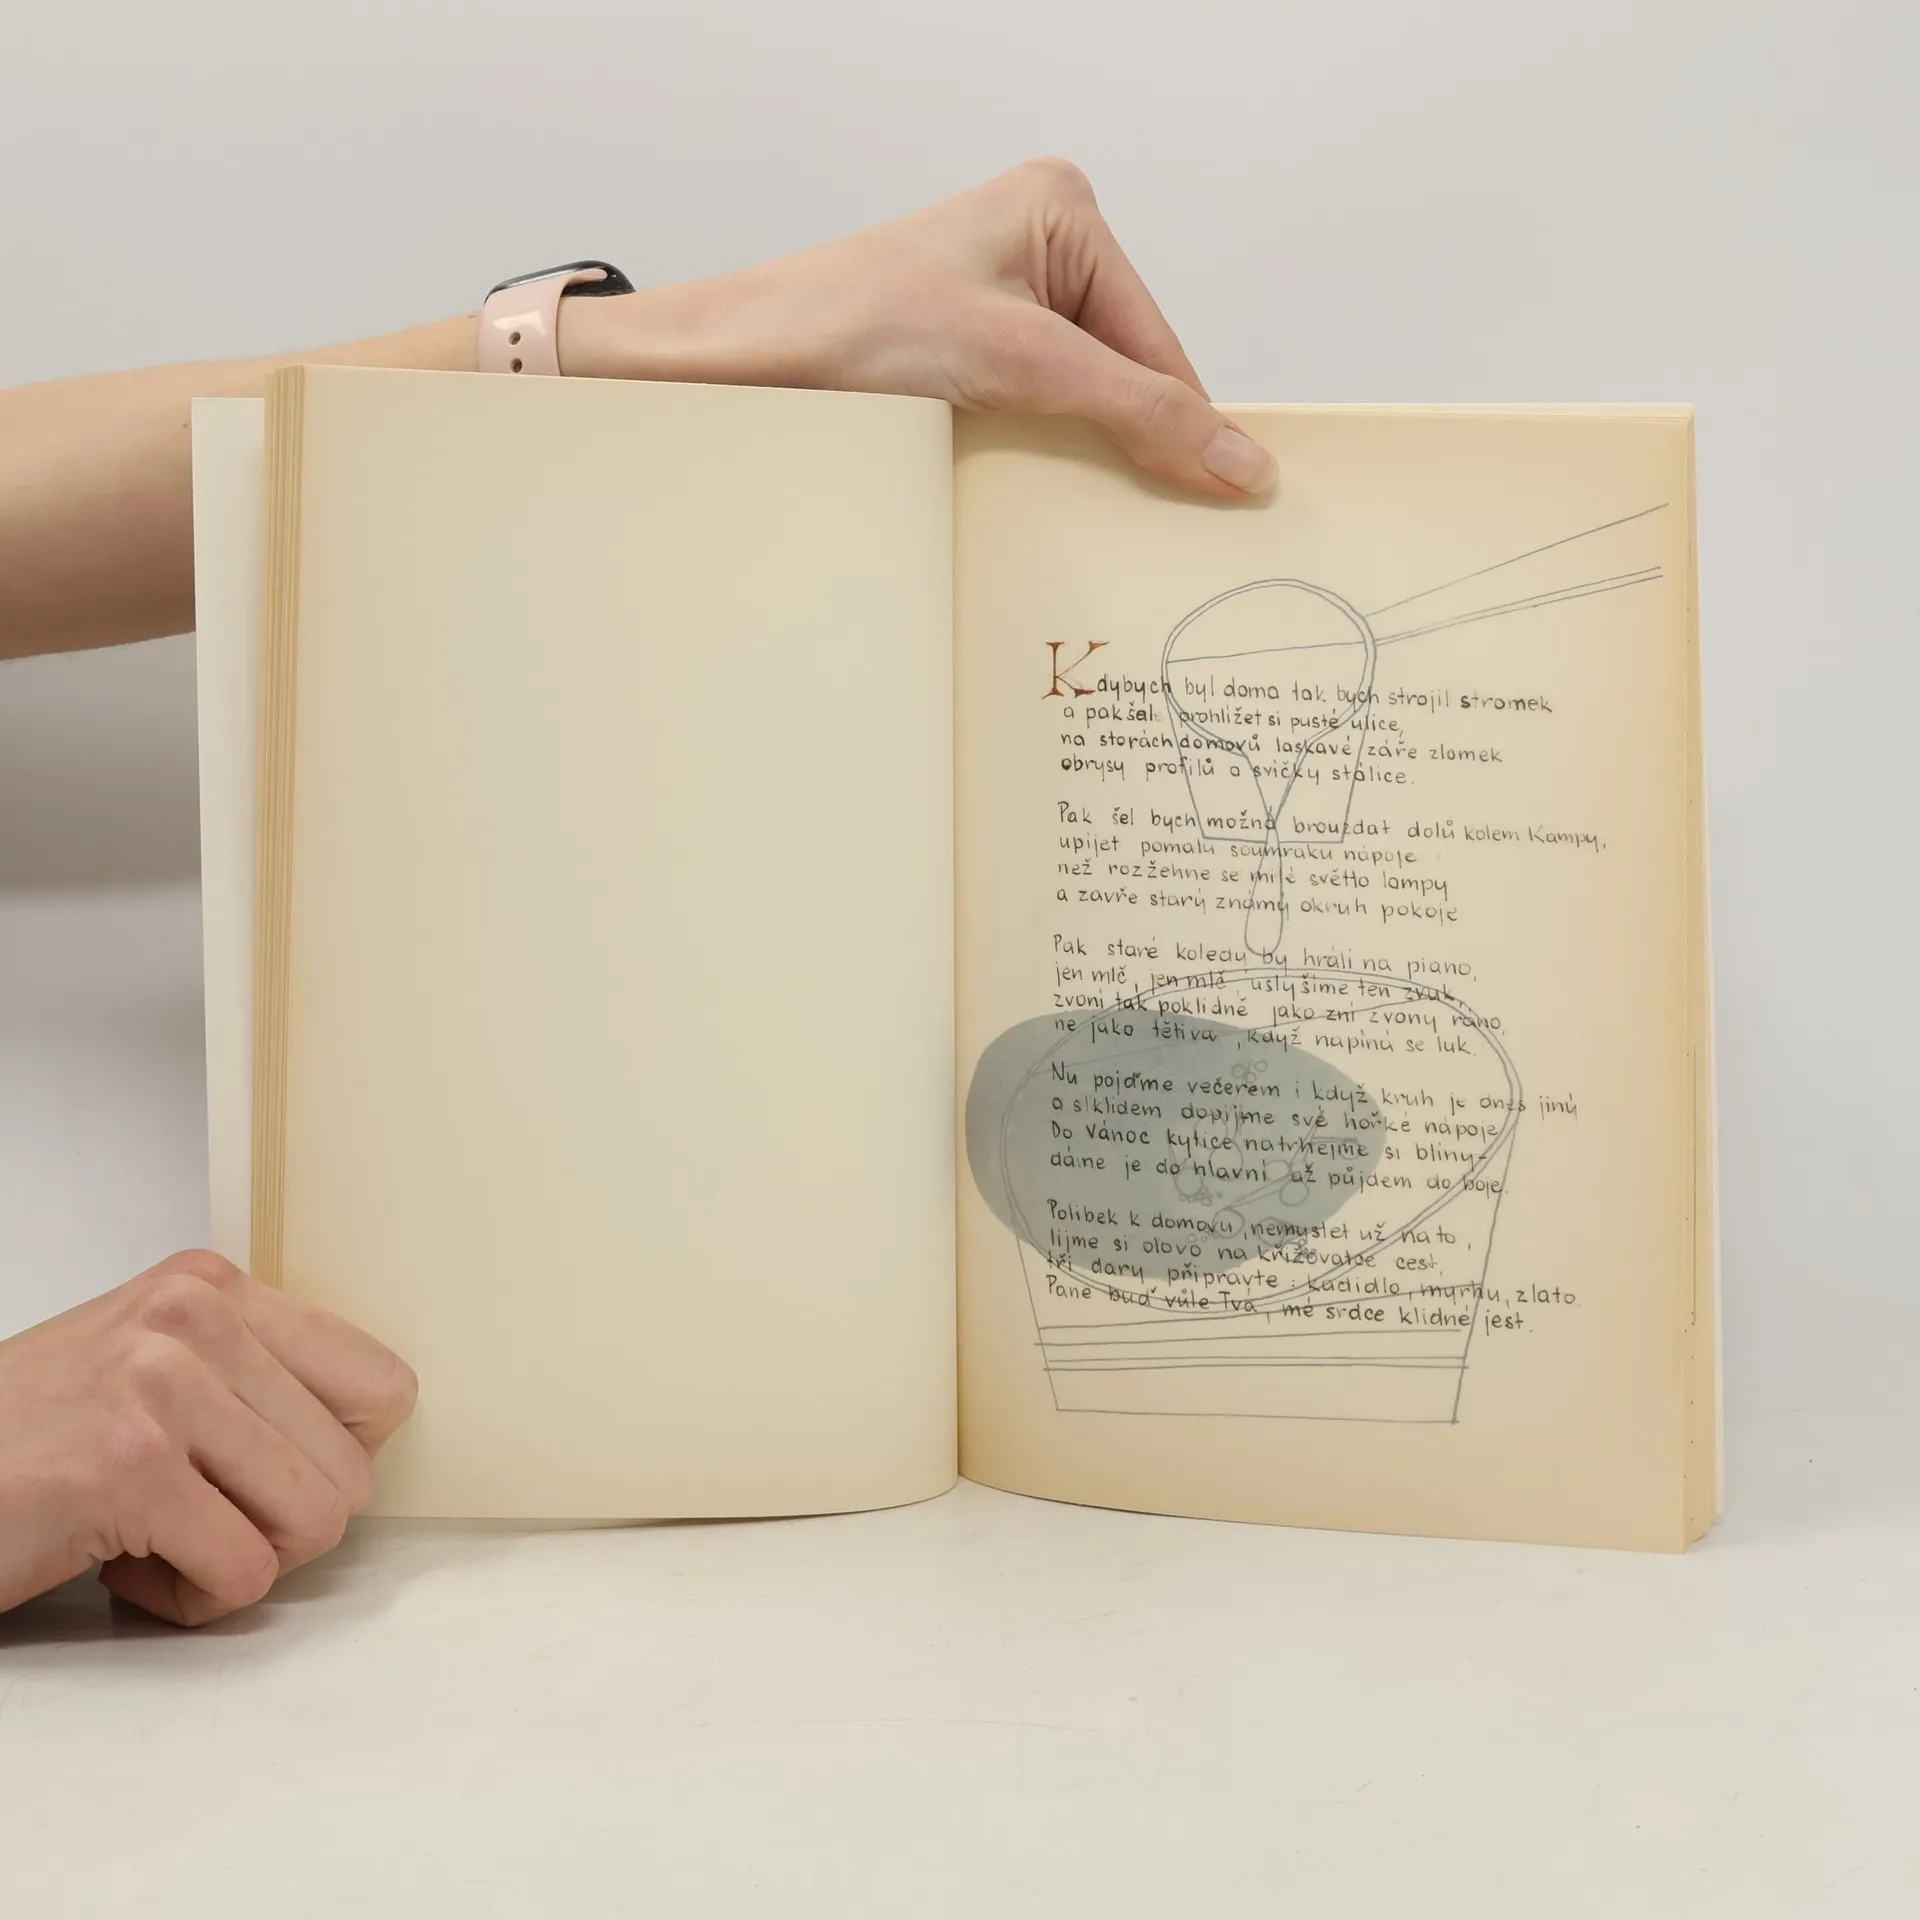 Kdybych byl doma tak bych strojil stromek
a pak šel prohlížet si pusté ulice,
na storách domovů laskavé záře zlomek
obrysy profilů a svíčky stálice.
Pak šel bych možná brouzdat dolů kolem Kampy,
upíjet pomalu soumraku nápoje
než rozžehne se milé světlo lampy
a zavře starý známý okruh pokoje
Pak staré koledy by hráli na piano,
jen mlč, jen mlč, uslyšíme ten zvuk,
zvoní tak poklidně jako zní zvony ráno,
ne jako tětiva, když napíná se luk.
Nu pojďme večerem i když kruh je dnes jiný
a s klidem dopijme své hořké nápoje
Do Vánoc kytice natrhejme si blíny-
dáme je do hlavní až půjdem do boje.
Polibek k domovu, nemyslet už na to,
lijme si olovo na křižovatce cest,
tři dary připravte: kadidlo, myrhu, zlato
Pane buď vůle Tvá, mé srdce klidné jest.